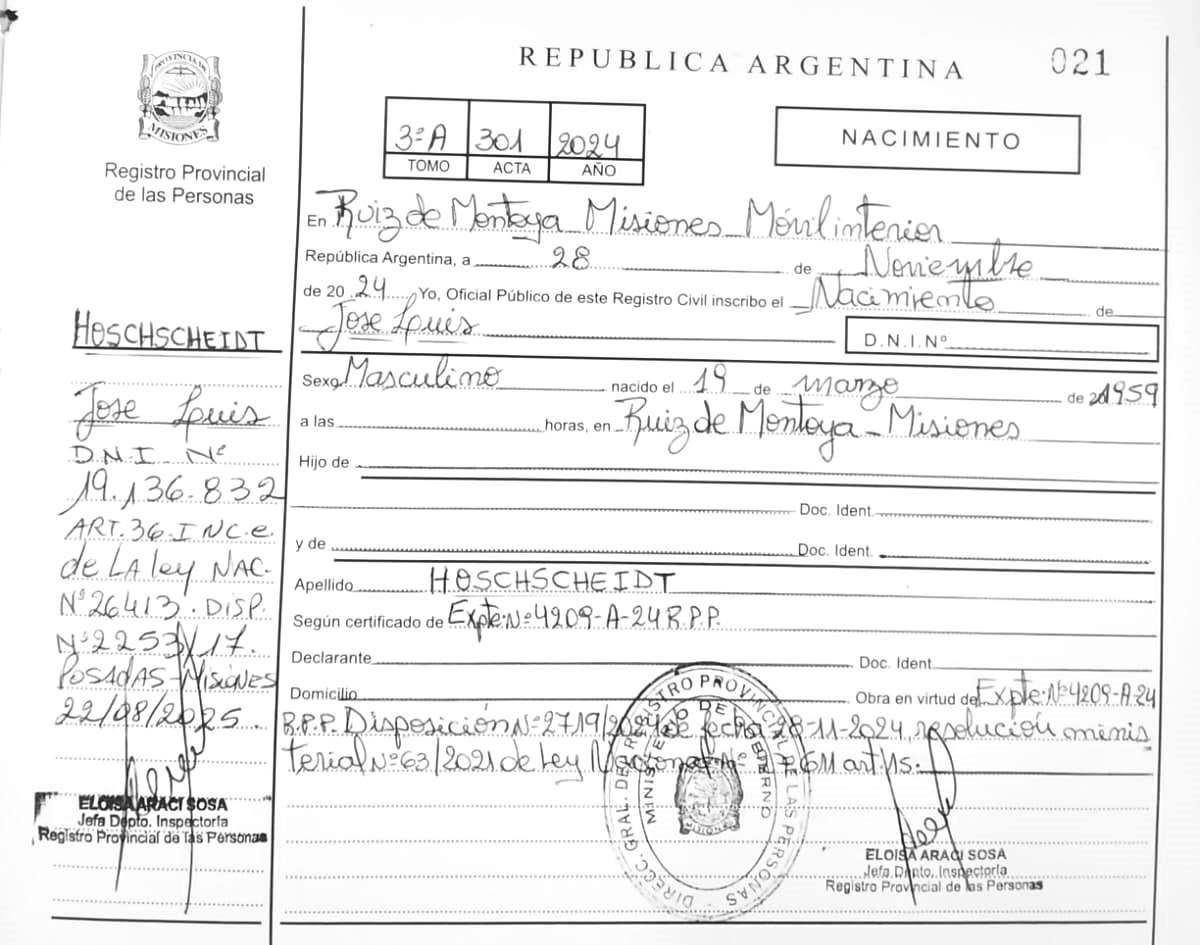 REPUBLICA ARGENTINA
021
PROVINCIA DE
MISIONES
Registro Provincial
de las Personas
3ªA 301 2024
TOMO ACTA AÑO
NACIMIENTO
En Ruiz de Montoya Misiones Móvil interior
República Argentina, a 28 de Noviembre
de 20 24 Yo, Oficial Público de este Registro Civil inscribo el Nacimiento de
Jose Luis D.N.I. Nº
Sexo Masculino nacido el 19 de marzo de 1959
a las horas, en Ruiz de Montoya - Misiones
Hijo de
Doc. Ident.
y de Doc. Ident.
Apellido HOSCHSCHEIDT
Según certificado de Expte. Nº 4209-A-24 R.P.P.
Declarante Doc. Ident.
Domicilio Obra en virtud de Expte. Nº 4209-A-24
R.P.P. Disposición Nº 2719/2024 de fecha 28-11-2024, resolución minis
terial Nº 63/2021 de Ley Nacional Nº
HOSCHSCHEIDT
Jose Luis
D.N.I. Nº
19.136.832
ART. 36. INC. e.
de LA ley NAC.
Nº 26413. DISP.
Nº 2253/17.
POSADAS - Misiones
22/08/2025.
ELOISA ARACI SOSA
Jefa Dpto. Inspectoría
Registro Provincial de las Personas
DIRECC. GRAL. DEL REGISTRO PROVINCIAL DE LAS PERSONAS
MINISTERIO DE GOBIERNO
MISIONES
ELOISA ARACI SOSA
Jefa Dpto. Inspectoría
Registro Provincial de las Personas